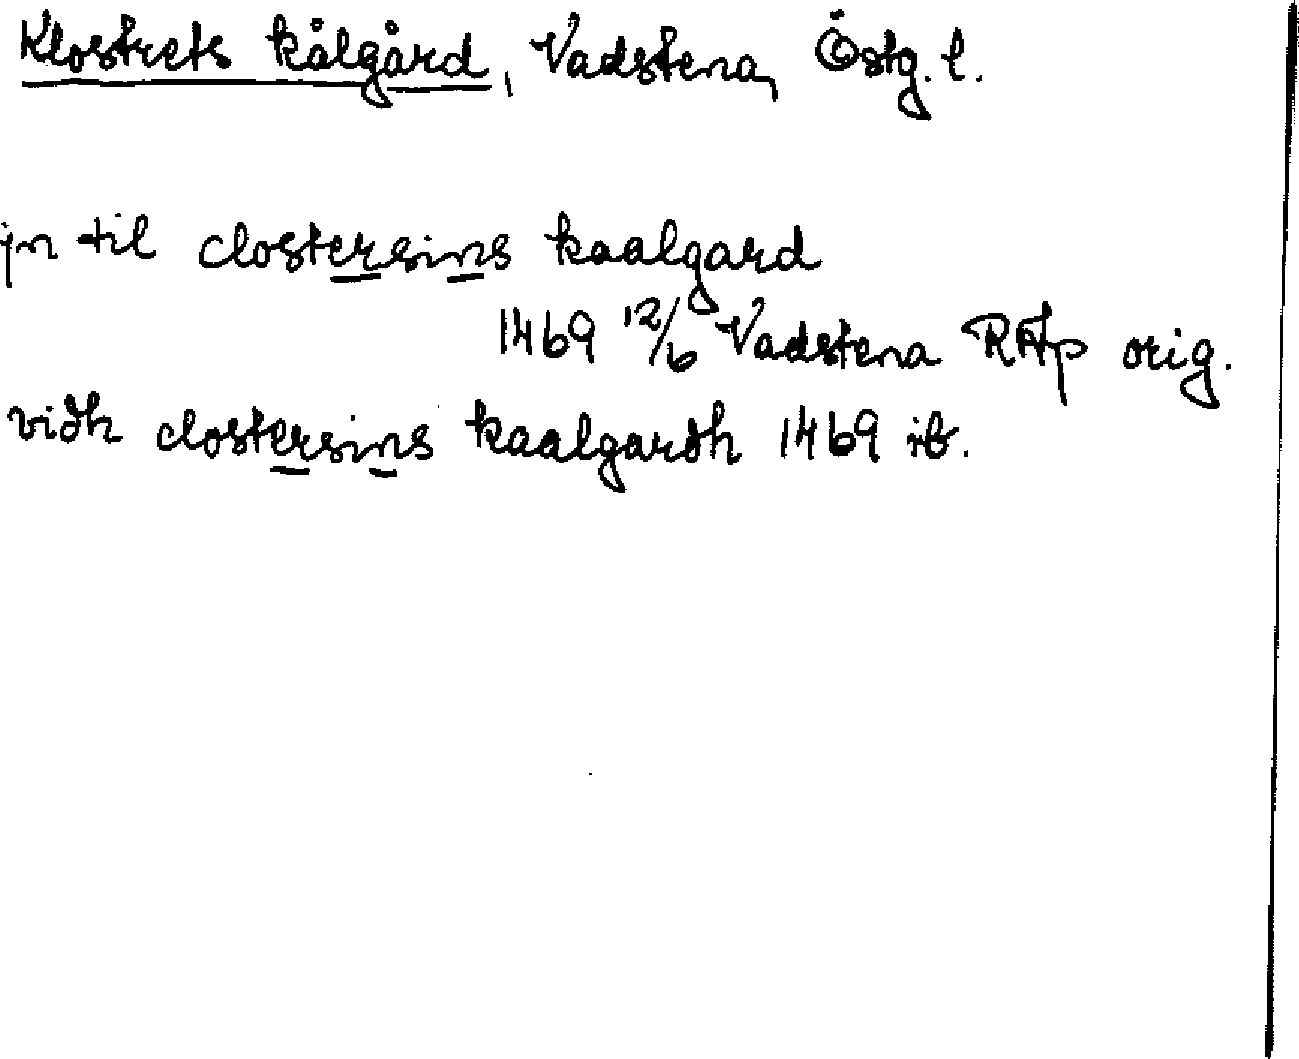 Klostrets kålgård, Vadstena, Östg. l.
jn til clostersins kaalgard
1469 12/6 Vadstena RAp orig.
vidh clostersins kaalgardh 1469 ib.